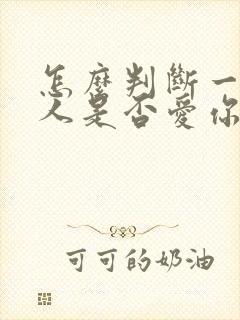 怎麼判斷一
人是否愛你
可可的奶油